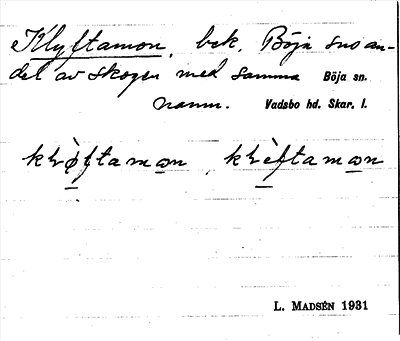 Klyftamon, bek. Böja snoan-
del av skogen med samma Böja sn.
namn. Vadsbo hd. Skar. l.
kløftamon, klèftamon
L. MADSÉN 1931